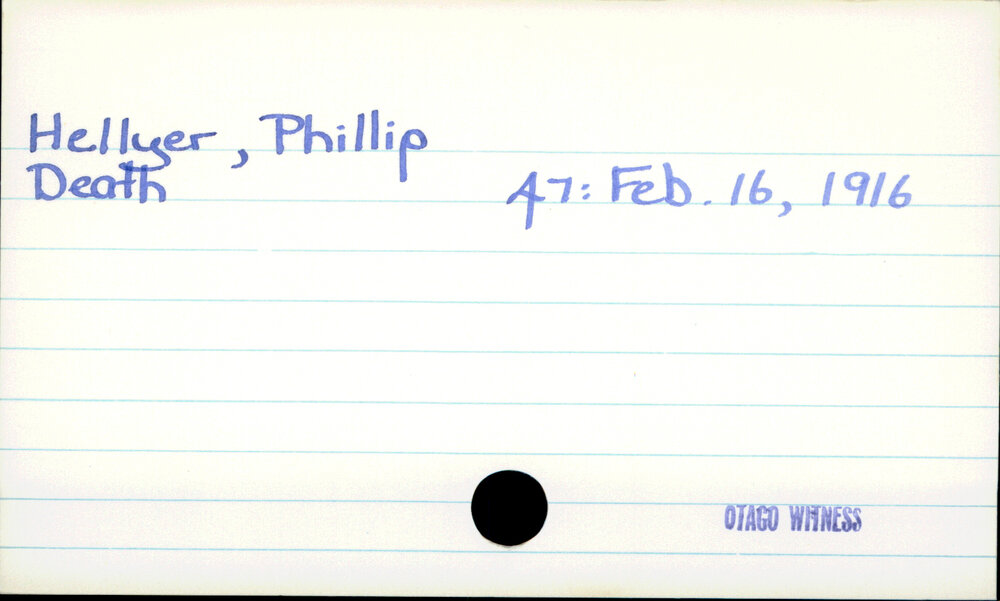 Hellyer, Phillip
Death 47: Feb. 16, 1916
OTAGO WITNESS